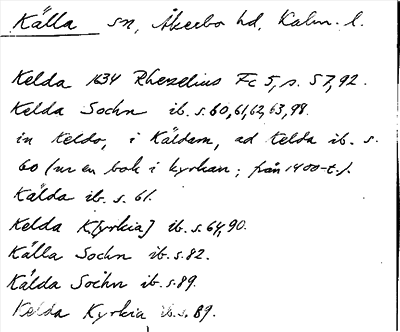 Källa sn, Åkerbo hd, Kalm. l.
Kelda 1634 Rhezelius Fc 5, s. 57, 92.
Kelda Sochn ib. s. 60, 61, 62, 63, 98.
in Keldo, i Käldam, ad Kelda ib. s.
60 (ur en bok i kyrkan; från 1400-t.).
Kälda ib. s. 61.
Kelda K[yrkia] ib. s. 64, 90.
Källa Sochn ib. s. 82.
Kälda Sochn ib. s. 89.
Kelda Kyrkia ib. s. 89.